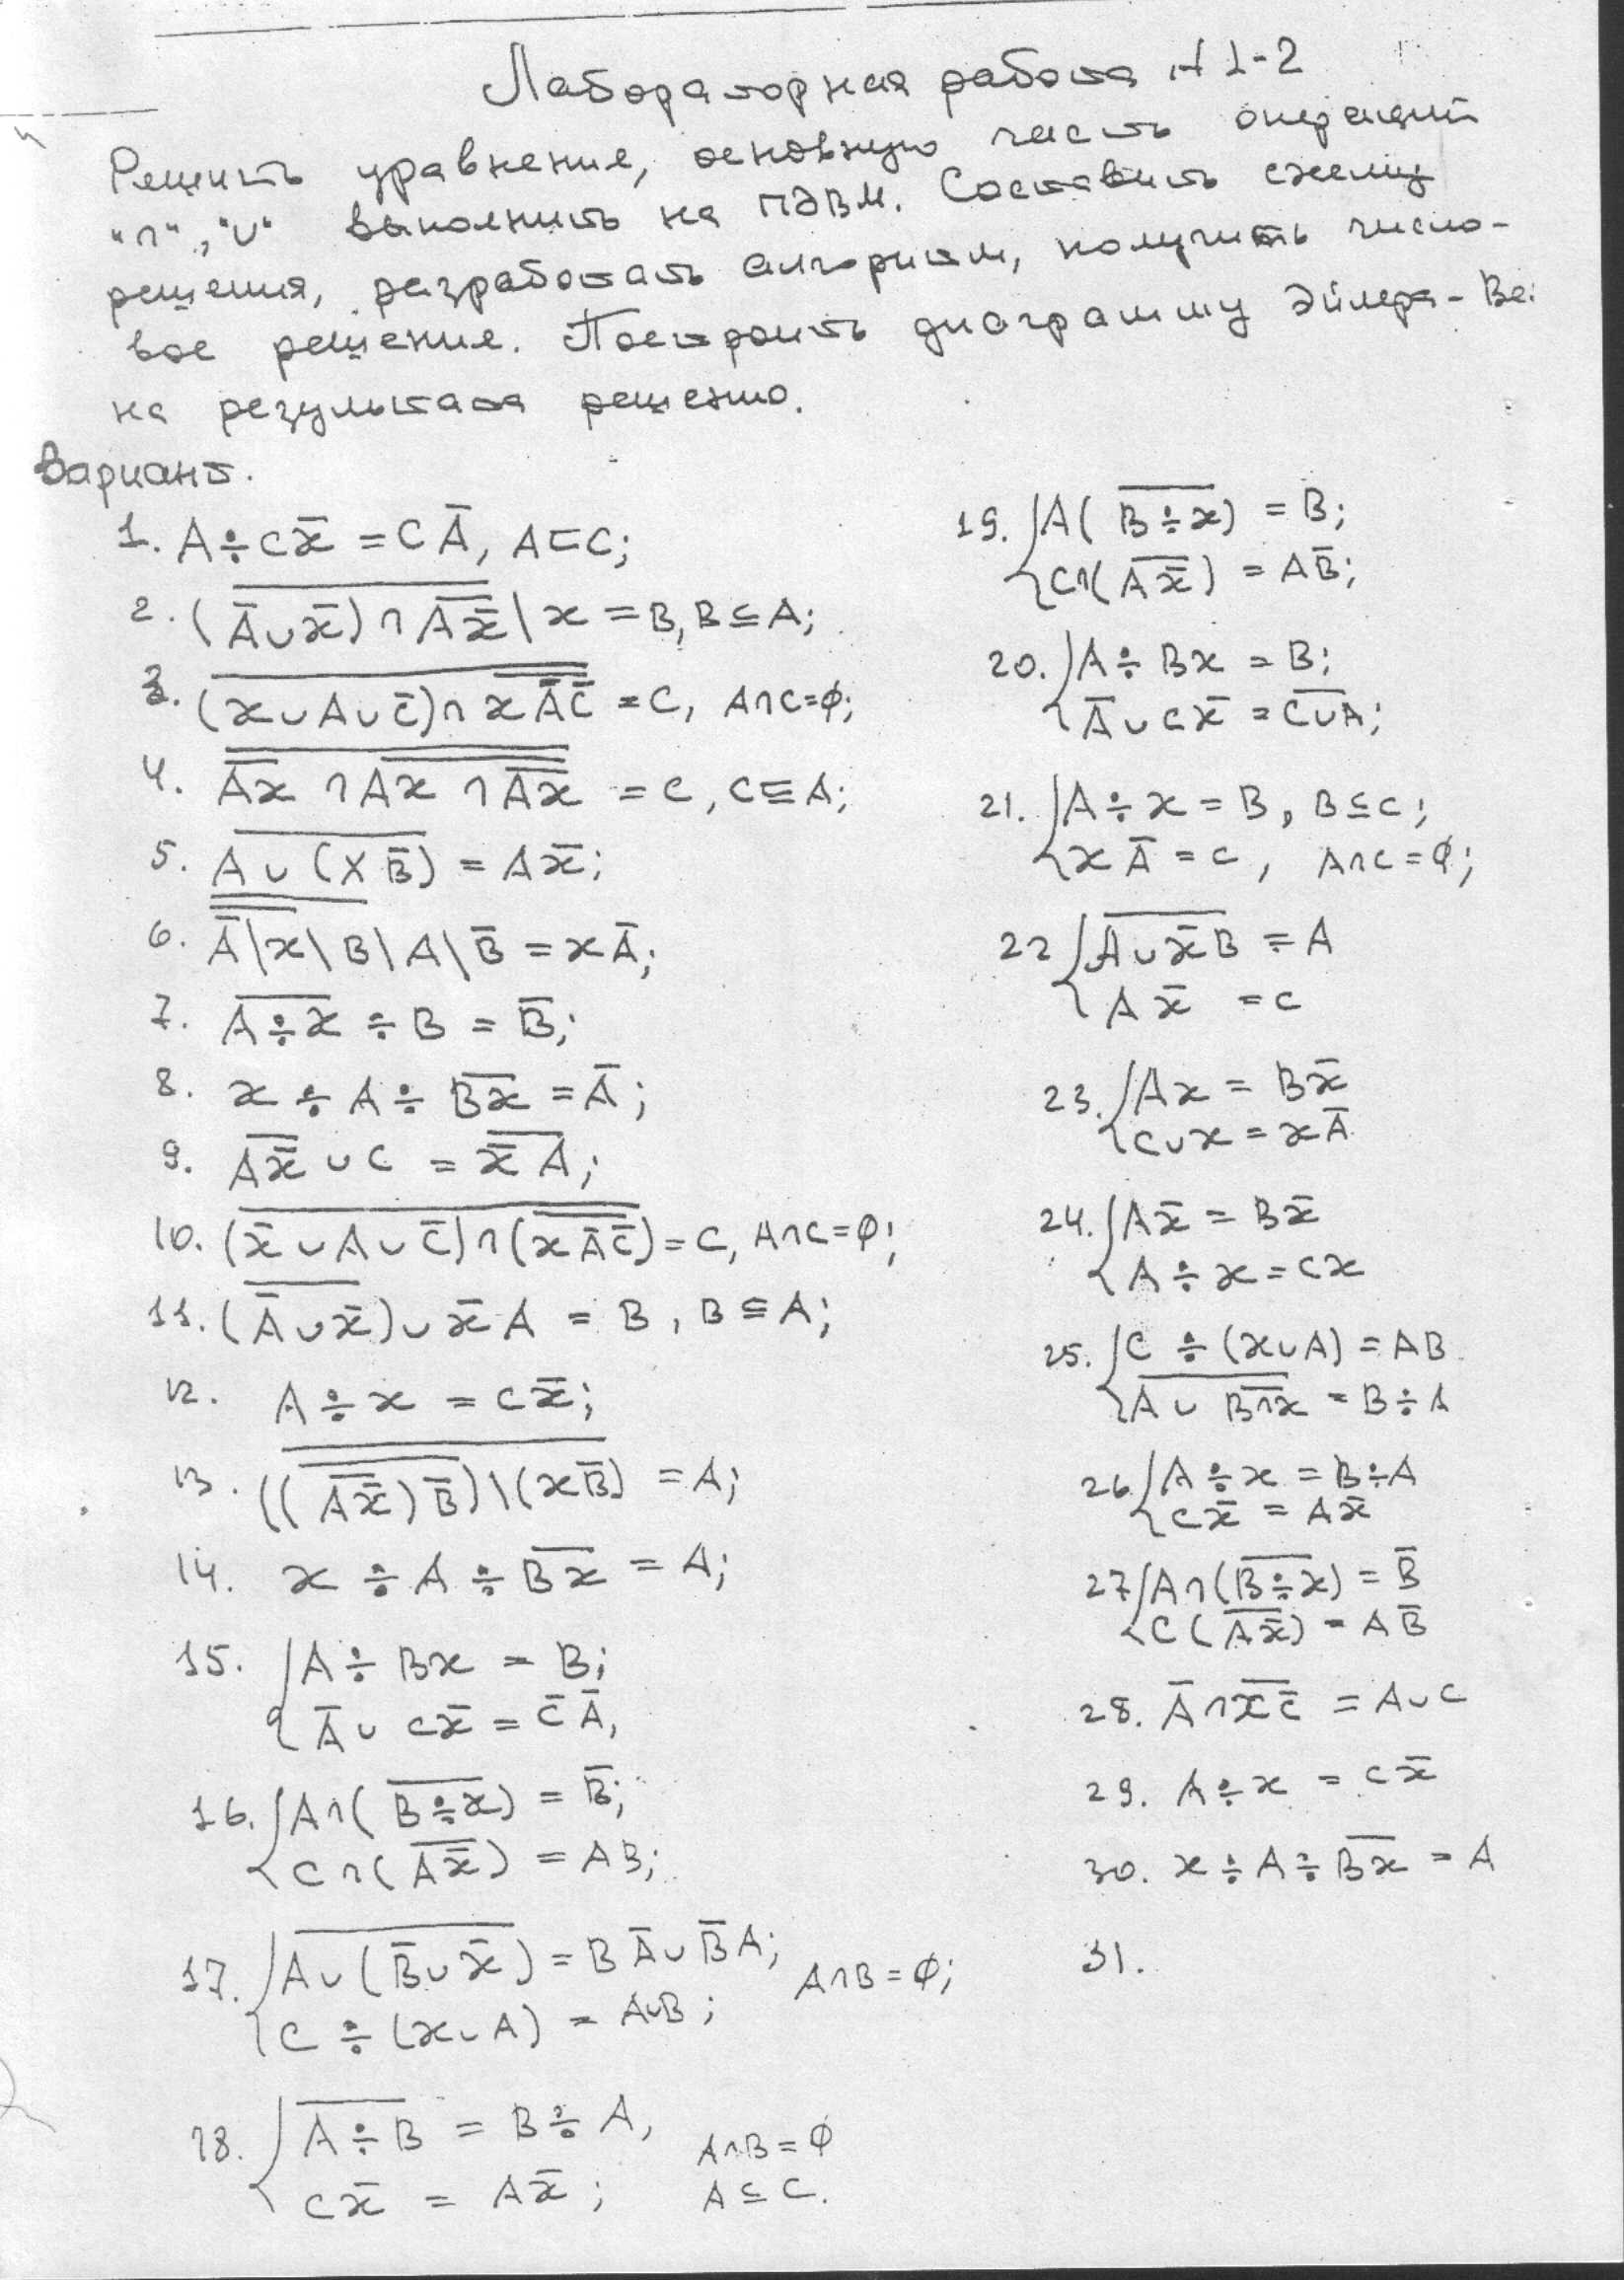 Лабораторная работа N 1-2
Решить уравнение, основную часть операций
"∩", "∪" выполнить на ПЭВМ. Составить схему
решения, разработать алгоритм, получить число-
вое решение. Построить диаграмму Эйлера-Ве
на результата решению.
Вариант.
1. A÷Cx̄ = CĀ, A⊂C;
2. (\overline{Ā∪x̄) ∩ \overline{Ax̄}} \ x = B, B⊆A;
3. \overline{(x∪A∪C̄)∩\overline{\overline{xĀC̄}}} = C, A∩C=∅;
4. \overline{\overline{\overline{Ax} ∩ A\overline{x ∩ \overline{Ax}}}} = C, C⊆A;
5. \overline{A∪(XB̄)} = Ax̄;
6. \overline{\overline{Ā\x}\B}\A\B̄ = xĀ;
7. \overline{A÷x} ÷ B = B̄;
8. x ÷ A ÷ \overline{Bx} = Ā;
9. \overline{Ax̄} ∪ C = \overline{x̄A};
10. \overline{(x̄∪A∪C̄)∩(\overline{\overline{xĀC̄}})} = C, A∩C=∅;
11. (\overline{Ā∪x̄})∪x̄A = B, B⊆A;
12. A÷x = Cx̄;
13. \overline{((\overline{\overline{Ax̄})B̄})\(xB̄)} = A;
14. x ÷ A ÷ \overline{Bx} = A;
15. {A÷Bx = B;
Ā∪Cx̄ = C̄Ā,
16. {A∩(\overline{B÷x}) = B̄;
C∩(\overline{Ax̄}) = AB;
17. {\overline{A∪(B̄∪x̄)} = BĀ∪B̄A; A∩B=∅;
C÷(x∪A) = A∪B;
18. {\overline{A÷B} = B÷A, A∩B=∅
Cx̄ = Ax̄; A⊆C.
19. {A(\overline{B÷x}) = B;
C∩(\overline{Ax̄}) = AB̄;
20. {A÷Bx = B;
Ā∪Cx̄ = \overline{C∪A};
21. {A÷x = B, B⊆C;
xĀ = C, A∩C=∅;
22 {\overline{A∪x̄B} = A
Ax̄ = C
23. {Ax = Bx̄
C∪x = xĀ
24. {Ax̄ = Bx̄
A÷x = Cx
25. {C÷(x∪A) = AB
\overline{A∪\overline{B∩x}} = B÷A
26 {A÷x = B÷A
Cx̄ = Ax̄
27 {A∩(\overline{B÷x}) = B̄
C(\overline{Ax̄}) = AB̄
28. Ā∩\overline{xC̄} = A∪C
29. A÷x = Cx̄
30. x÷A÷\overline{Bx} = A
31.